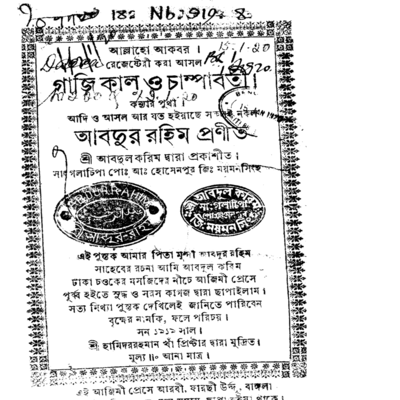 182 Nb
15.1.20
আল্লাহো আকবর ।
রেজেষ্টেরী করা আসল
গাজি কালু ও চাম্পাবতী ।
কন্যার পুথা ।
আদি ও আসল আর যত হইয়াছে
আবদুর রহিম প্রণীত
শ্রী আবদুল করিম দ্বারা প্রকাশীত ।
সাং গলাচিপা পোঃ আঃ হোসেনপুর জিঃ ময়মনসিংহ
শ্রী আবদুল করিম
সাং গলাচিপা
জিঃ ময়মনসিং
এই পুস্তক আমার পিতা মুন্সী আবদুর রহিম
সাহেবের রচনা আমি আবদুল করিম
ঢাকা চওকের মসজিদের নীচে আজিমী প্রেসে
পূর্ব্ব হইতে সুদ্ধ ও সরস কাগজ দ্বারা ছাপাইলাম ।
সত্য মিথ্যা পুস্তক দেখিলেই জানিতে পারিবেন
বৃক্ষের নামকি, ফলে পরিচয় ।
সন ১৯১৯ সাল ।
শ্রী হামিদর রহমান খাঁ প্রিন্টার দ্বারা মুদ্রিত ।
মূল্য ॥০ আনা মাত্র ।
এই আজিমী প্রেসে আরবী, ফারছী উর্দ্দু, বাঙ্গলা